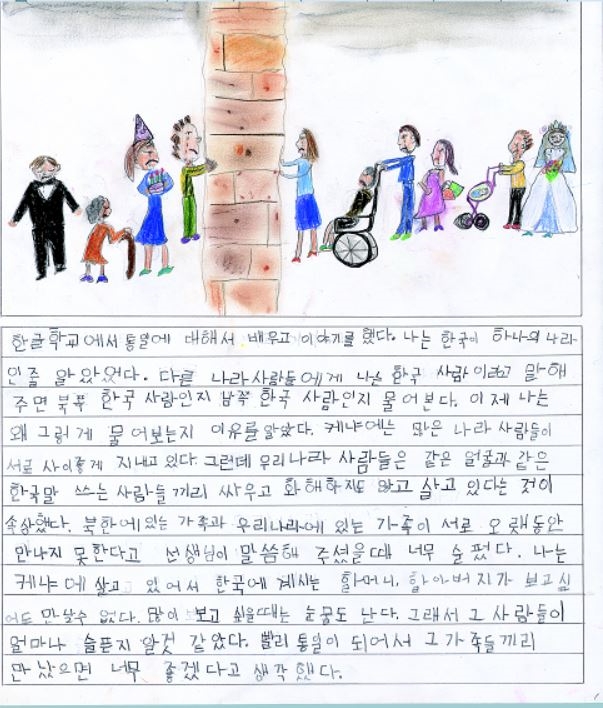 한글학교에서 통일에 대해서 배우고 이야기를 했다. 나는 한국이 하나의 나라
인줄 알았었다. 다른 나라사람들에게 나는 한국 사람이라고 말해
주면 북쪽 한국 사람인지 남쪽 한국 사람인지 물어본다. 이제 나는
왜 그렇게 물어보는지 이유를 알았다. 케냐에는 많은 나라 사람들이
서로 사이좋게 지내고 있다. 그런데 우리나라 사람들은 같은 얼굴과 같은
한국말 쓰는 사람들끼리 싸우고 화해하지도 않고 살고 있다는 것이
속상했다. 북한에 있는 가족과 우리나라에 있는 가족이 서로 오랫동안
만나지 못한다고 선생님이 말씀해 주셨을때 너무 슬펐다. 나는
케냐에 살고 있어서 한국에 계시는 할머니, 할아버지가 보고싶
어도 만날수 없다. 많이 보고 싶을때는 눈물도 난다. 그래서 그 사람들이
얼마나 슬픈지 알것 같았다. 빨리 통일이 되어서 그 가족들끼리
만났으면 너무 좋겠다고 생각했다.